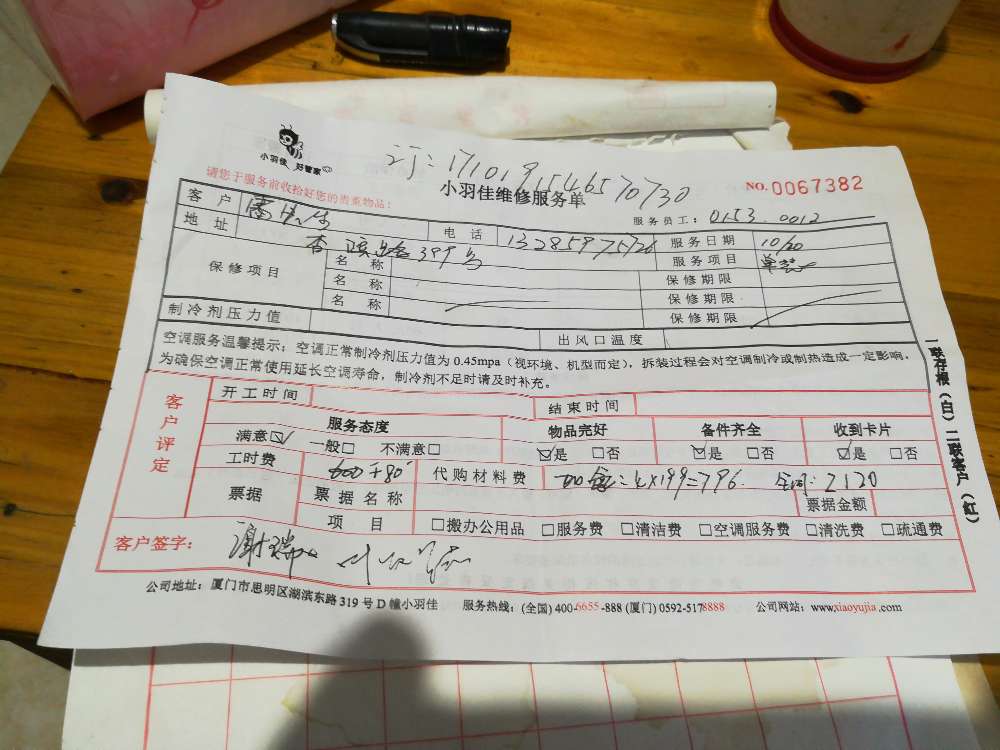 小羽佳 好管家
订: 1710191546570730
请您于服务前收拾好您的贵重物品:
小羽佳维修服务单
NO. 0067382
服务员工: 0153 0012
客户 电话 13285975726 服务日期 10/20
地址 杏 路399号 服务项目
保修项目 名称 保修期限
名称 保修期限
名称 保修期限
制冷剂压力值 出风口温度
空调服务温馨提示: 空调正常制冷剂压力值为 0.45mpa (视环境、机型而定), 拆装过程会对空调制冷或制热造成一定影响,
为确保空调正常使用延长空调寿命, 制冷剂不足时请及时补充。
客户评定
开工时间 结束时间
服务态度 物品完好 备件齐全 收到卡片
满意☑ 一般□ 不满意□ ☑是 □否 ☑是 □否 ☑是 □否
工时费 600+80 代购材料费 4×199=796. 2120
票据 票据名称 票据金额
项目 □搬办公用品 □服务费 □清洁费 □空调服务费 □清洗费 □疏通费
客户签字: 谢瑞
一联存根(白) 二联客户(红)
公司地址: 厦门市思明区湖滨东路 319 号 D 幢小羽佳 服务热线: (全国) 400-6655-888 (厦门) 0592-5178888 公司网站: www.xiaoyujia.com